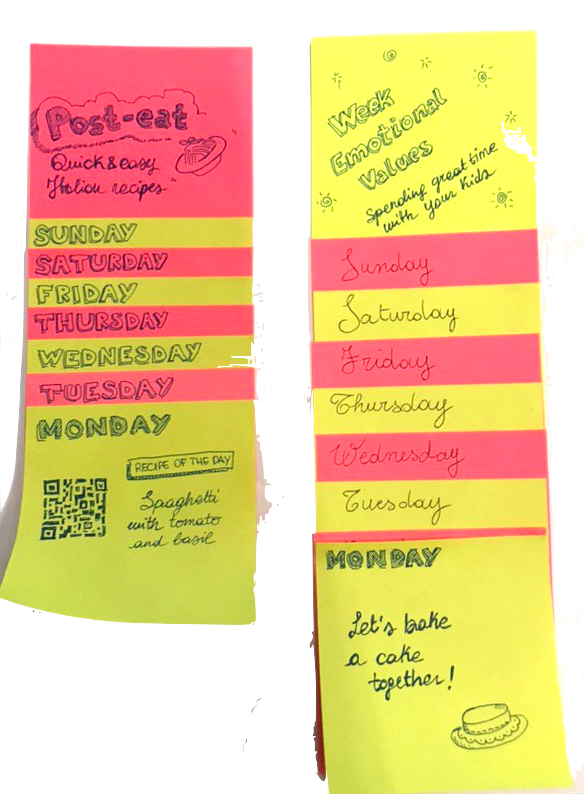 Post-eat
Quick & easy
Italian recipes
SUNDAY
SATURDAY
FRIDAY
THURSDAY
WEDNESDAY
TUESDAY
MONDAY
RECIPE OF THE DAY
Spaghetti
with tomato
and basil
Week
Emotional
Values
Spending great time
with your kids
Sunday
Saturday
Friday
Thursday
Wednesday
Tuesday
MONDAY
Let's bake
a cake
together!